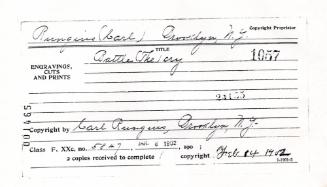 Rungius (Carl) Brooklyn, N.Y. Copyright Proprietor
TITLE
ENGRAVINGS, CUTS AND PRINTS
Battle (The) cry
1057
001465
Copyright by Carl Rungius, Brooklyn, N.Y.
Class F. XXc. no. 5847, 6 1902
2 copies received to complete copyright Feb 14 1902